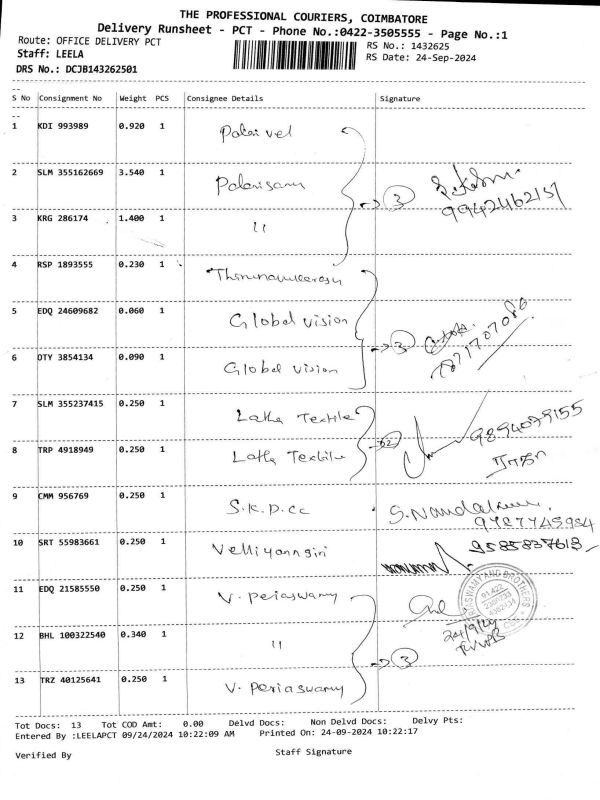 THE PROFESSIONAL COURIERS, COIMBATORE
Delivery Runsheet - PCT - Phone No.:0422-3505555 - Page No.:1
Route: OFFICE DELIVERY PCT
RS No.: 1432625
Staff: LEELA
RS Date: 24-Sep-2024
DRS No.: DCJB143262501
S No Consignment No Weight PCS Consignee Details Signature
1 KDI 993989 0.920 1 Palani vel
2 SLM 355162669 3.540 1 Palanisamy
3
9942462157
3 KRG 286174 1.400 1 11
4 RSP 1893555 0.230 1
5 EDQ 24609682 0.060 1 Global vision
3
6 OTY 3854134 0.090 1 Global vision
7 SLM 355237415 0.250 1 Latha Textile
2 9894079155
8 TRP 4918949 0.250 1 Latha Textile
9 CMM 956769 0.250 1 S.K.D.CC
10 SRT 55983661 0.250 1 Velliyanngiri
11 EDQ 21585550 0.250 1 V. Periaswamy
24/9/24
12 BHL 100322540 0.340 1 11
3
13 TRZ 40125641 0.250 1 V. Periaswamy
Tot Docs: 13 Tot COD Amt: 0.00 Delvd Docs: Non Delvd Docs: Delvy Pts:
Entered By :LEELAPCT 09/24/2024 10:22:09 AM Printed On: 24-09-2024 10:22:17
Verified By Staff Signature